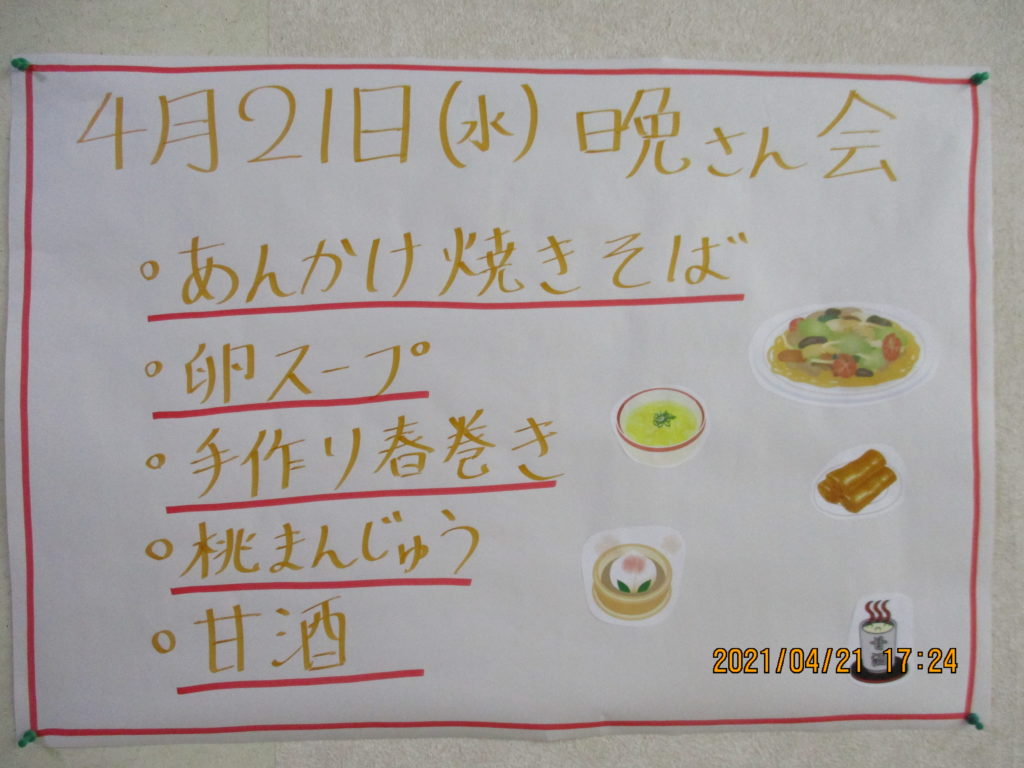 4月21日(水) 晩さん会
○あんかけ焼きそば
○卵スープ
○手作り春巻き
○桃まんじゅう
○甘酒
甘酒
2021/04/21 17:24